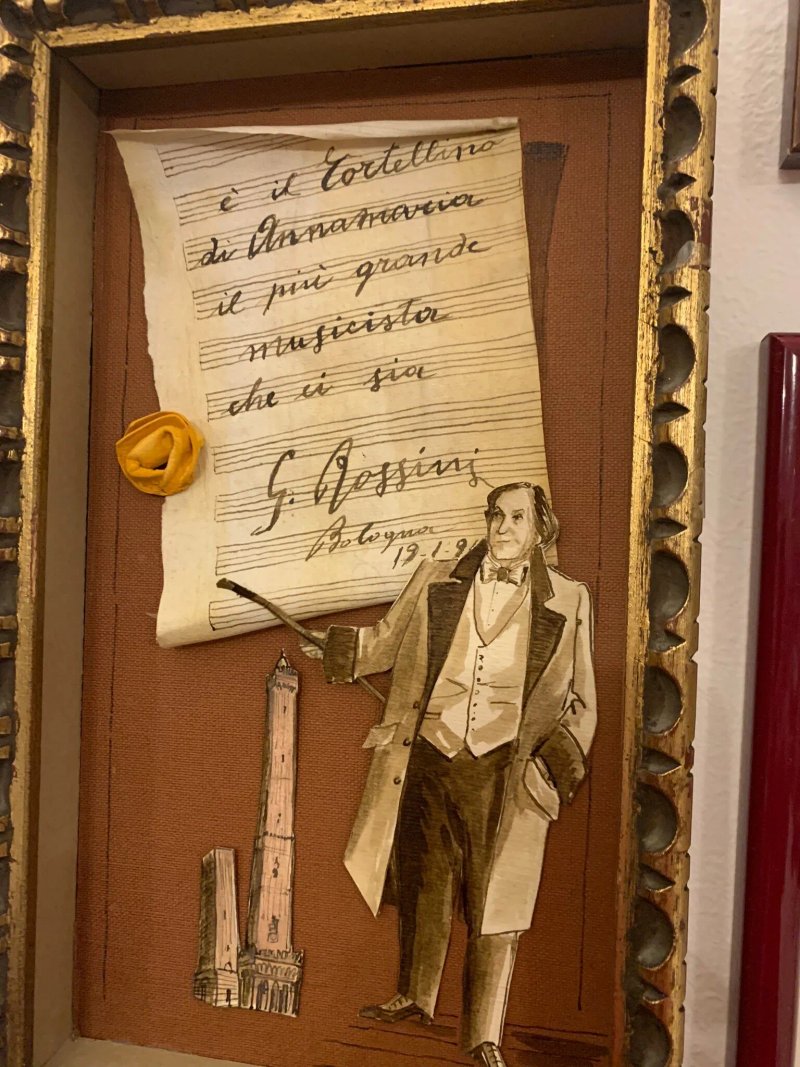 è il Tortellino
di Annamaria
il più grande
musicista
che ci sia
G. Rossini
Bologna